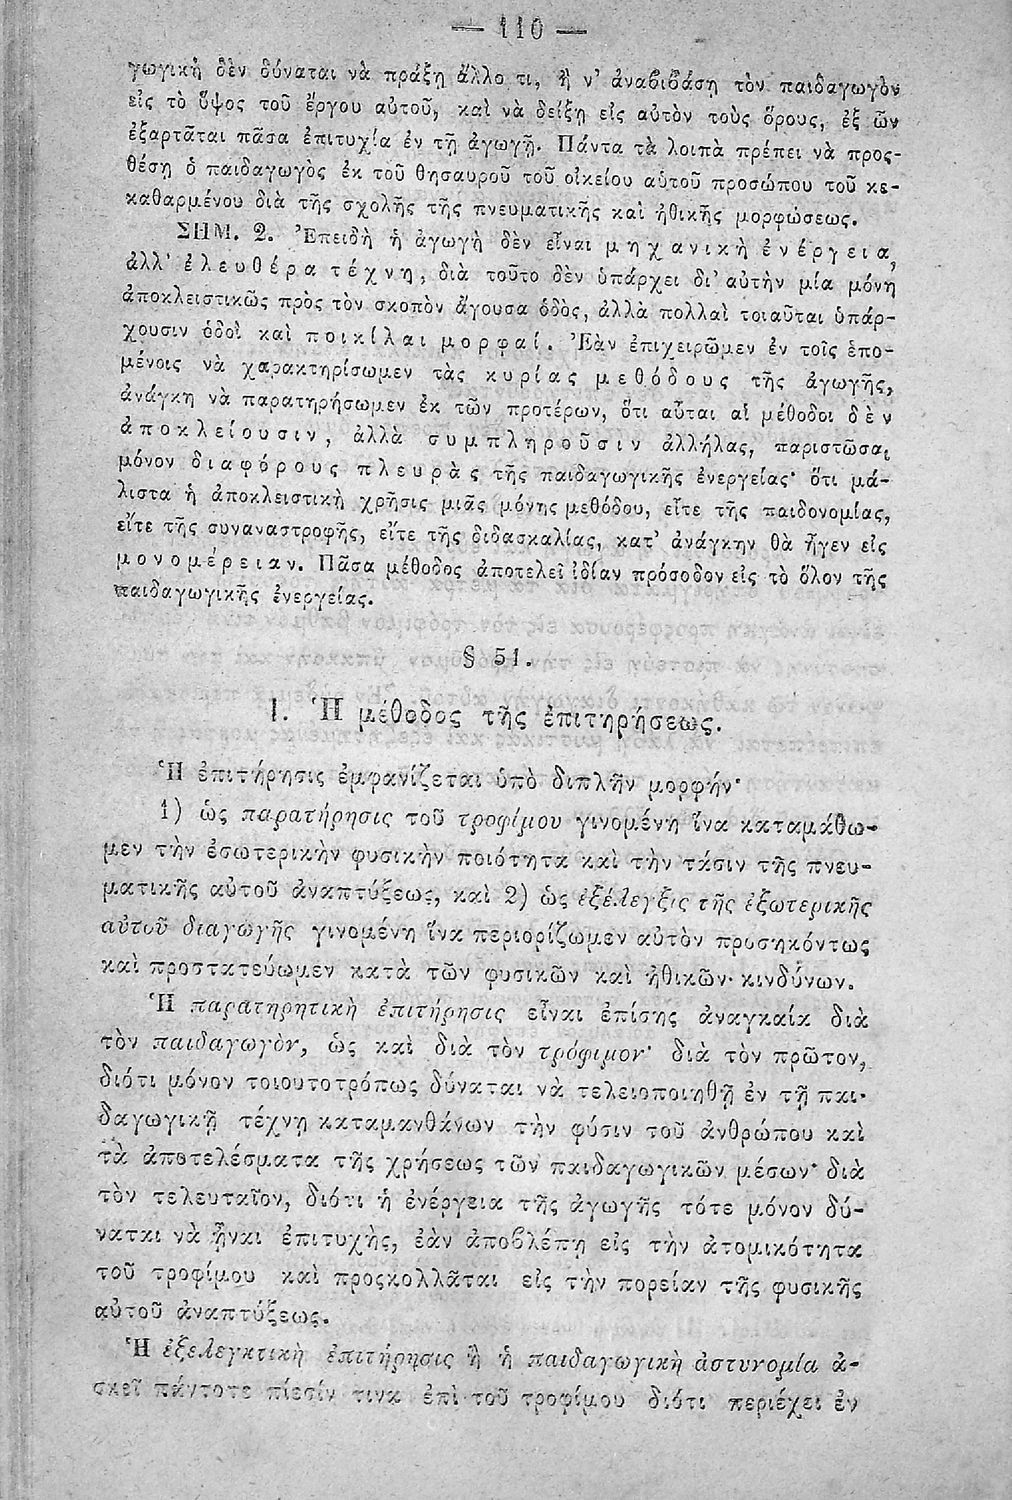 — 110 —
γωγικὴ δὲν δύναται νὰ πράξῃ ἄλλο τι, ἢ ν' ἀναβιβάσῃ τὸν παιδαγωγὸν
εἰς τὸ ὕψος τοῦ ἔργου αὐτοῦ, καὶ νὰ δείξῃ εἰς αὐτὸν τοὺς ὅρους, ἐξ ὧν
ἐξαρτᾶται πᾶσα ἐπιτυχία ἐν τῇ ἀγωγῇ. Πάντα τὰ λοιπὰ πρέπει νὰ προς-
θέσῃ ὁ παιδαγωγὸς ἐκ τοῦ θησαυροῦ τοῦ οἰκείου αὑτοῦ προσώπου τοῦ κε-
καθαρμένου διὰ τῆς σχολῆς τῆς πνευματικῆς καὶ ἠθικῆς μορφώσεως.
ΣΗΜ. 2. Ἐπειδὴ ἡ ἀγωγὴ δὲν εἶναι μηχανικὴ ἐνέργεια,
ἀλλ' ἐλευθέρα τέχνη, διὰ τοῦτο δὲν ὑπάρχει δι' αὐτὴν μία μόνη
ἀποκλειστικῶς πρὸς τὸν σκοπὸν ἄγουσα ὁδὸς, ἀλλὰ πολλαὶ τοιαῦται ὑπάρ-
χουσιν ὁδοὶ καὶ ποικίλαι μορφαί. Ἐὰν ἐπιχειρῶμεν ἐν τοῖς ἑπο-
μένοις νὰ χαρακτηρίσωμεν τὰς κυρίας μεθόδους τῆς ἀγωγῆς,
ἀνάγκη νὰ παρατηρήσωμεν ἐκ τῶν προτέρων, ὅτι αὗται αἱ μέθοδοι δὲν
ἀποκλείουσιν, ἀλλὰ συμπληροῦσιν ἀλλήλας, παριστῶσαι
μόνον διαφόρους πλευρὰς τῆς παιδαγωγικῆς ἐνεργείας· ὅτι μά-
λιστα ἡ ἀποκλειστικὴ χρῆσις μιᾶς μόνης μεθόδου, εἴτε τῆς παιδονομίας,
εἴτε τῆς συναναστροφῆς, εἴτε τῆς διδασκαλίας, κατ' ἀνάγκην θὰ ἦγεν εἰς
μονομέρειαν. Πᾶσα μέθοδος ἀποτελεῖ ἰδίαν πρόσοδον εἰς τὸ ὅλον τῆς
παιδαγωγικῆς ἐνεργείας.
§ 51.
Ι. Ἡ μέθοδος τῆς ἐπιτηρήσεως.
Ἡ ἐπιτήρησις ἐμφανίζεται ὑπὸ διπλῆν μορφήν·
1) ὡς παρατήρησις τοῦ τροφίμου γινομένη ἵνα καταμάθω-
μεν τὴν ἐσωτερικὴν φυσικὴν ποιότητα καὶ τὴν τάσιν τῆς πνευ-
ματικῆς αὐτοῦ ἀναπτύξεως, καὶ 2) ὡς ἐξέλεγξις τῆς ἐξωτερικῆς
αὐτοῦ διαγωγῆς γινομένη ἵνα περιορίζωμεν αὐτὸν προσηκόντως
καὶ προστατεύωμεν κατὰ τῶν φυσικῶν καὶ ἠθικῶν κινδύνων.
Ἡ παρατηρητικὴ ἐπιτήρησις εἶναι ἐπίσης ἀναγκαία διὰ
τὸν παιδαγωγὸν, ὡς καὶ διὰ τὸν τρόφιμον· διὰ τὸν πρῶτον,
διότι μόνον τοιουτοτρόπως δύναται νὰ τελειοποιηθῇ ἐν τῇ παι-
δαγωγικῇ τέχνῃ καταμανθάνων τὴν φύσιν τοῦ ἀνθρώπου καὶ
τὰ ἀποτελέσματα τῆς χρήσεως τῶν παιδαγωγικῶν μέσων· διὰ
τὸν τελευταῖον, διότι ἡ ἐνέργεια τῆς ἀγωγῆς τότε μόνον δύ-
ναται νὰ ἦναι ἐπιτυχὴς, ἐὰν ἀποβλέπῃ εἰς τὴν ἀτομικότητα
τοῦ τροφίμου καὶ προςκολλᾶται εἰς τὴν πορείαν τῆς φυσικῆς
αὐτοῦ ἀναπτύξεως.
Ἡ ἐξελεγκτικὴ ἐπιτήρησις ἢ ἡ παιδαγωγικὴ ἀστυνομία ἀ-
σκεῖ πάντοτε πίεσίν τινα ἐπὶ τοῦ τροφίμου διότι περιέχει ἐν